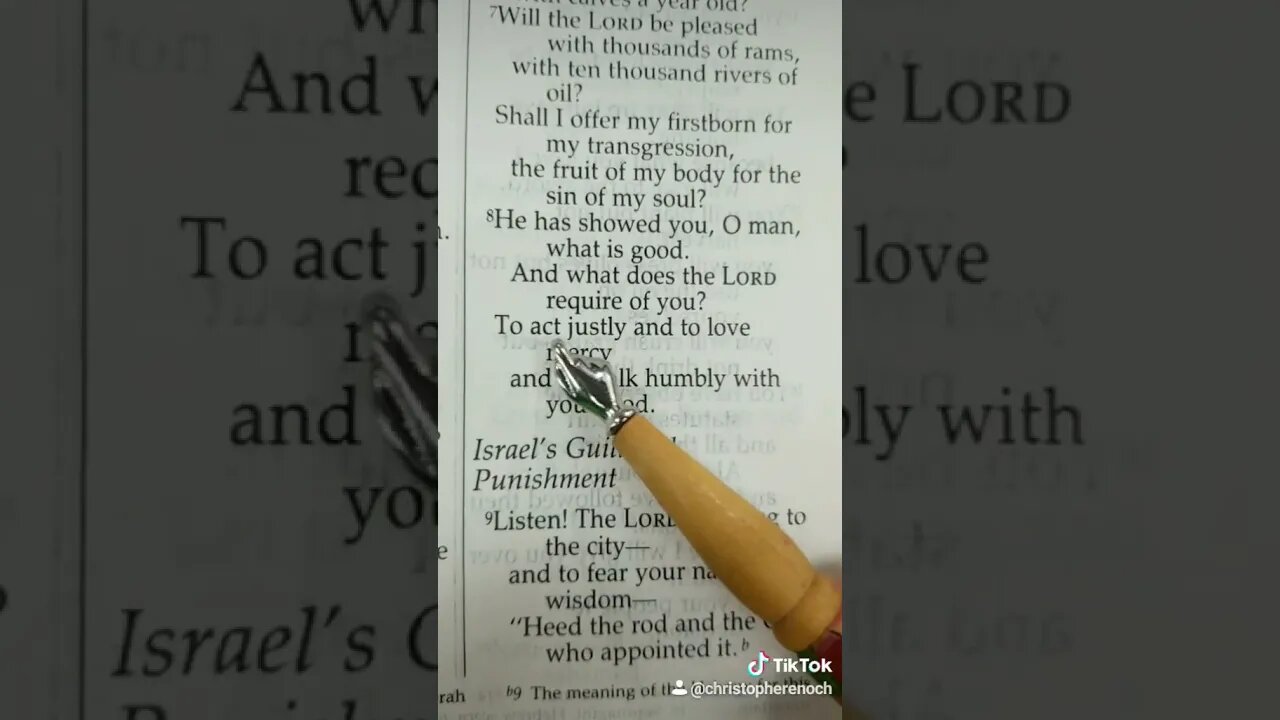 calves a year old?
⁷Will the LORD be pleased
with thousands of rams,
with ten thousand rivers of
oil?
Shall I offer my firstborn for
my transgression,
the fruit of my body for the
sin of my soul?
⁸He has showed you, O man,
what is good.
And what does the LORD
require of you?
To act justly and to love
mercy
and lk humbly with
you od.
Israel's Gui
Punishment
⁹Listen! The LORD g to
the city—
and to fear your na
wisdom—
"Heed the rod and the
who appointed it.ᵇ
rah
ᵇ9 The meaning of th for this
TikTok
@christopherenoch